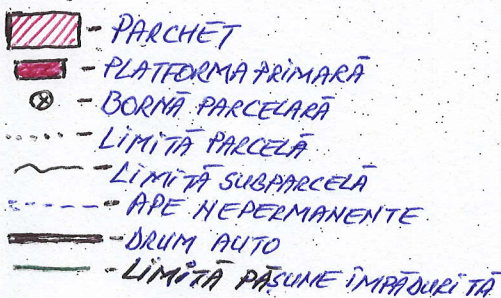 - PARCHET
- PLATFORMA PRIMARĂ
- BORNĂ PARCELARĂ
- LIMITĂ PARCELĂ
- LIMITĂ SUBPARCELĂ
- APE NEPERMANENTE
- DRUM AUTO
- LIMITĂ PĂSUNE ÎMPĂDURITĂ